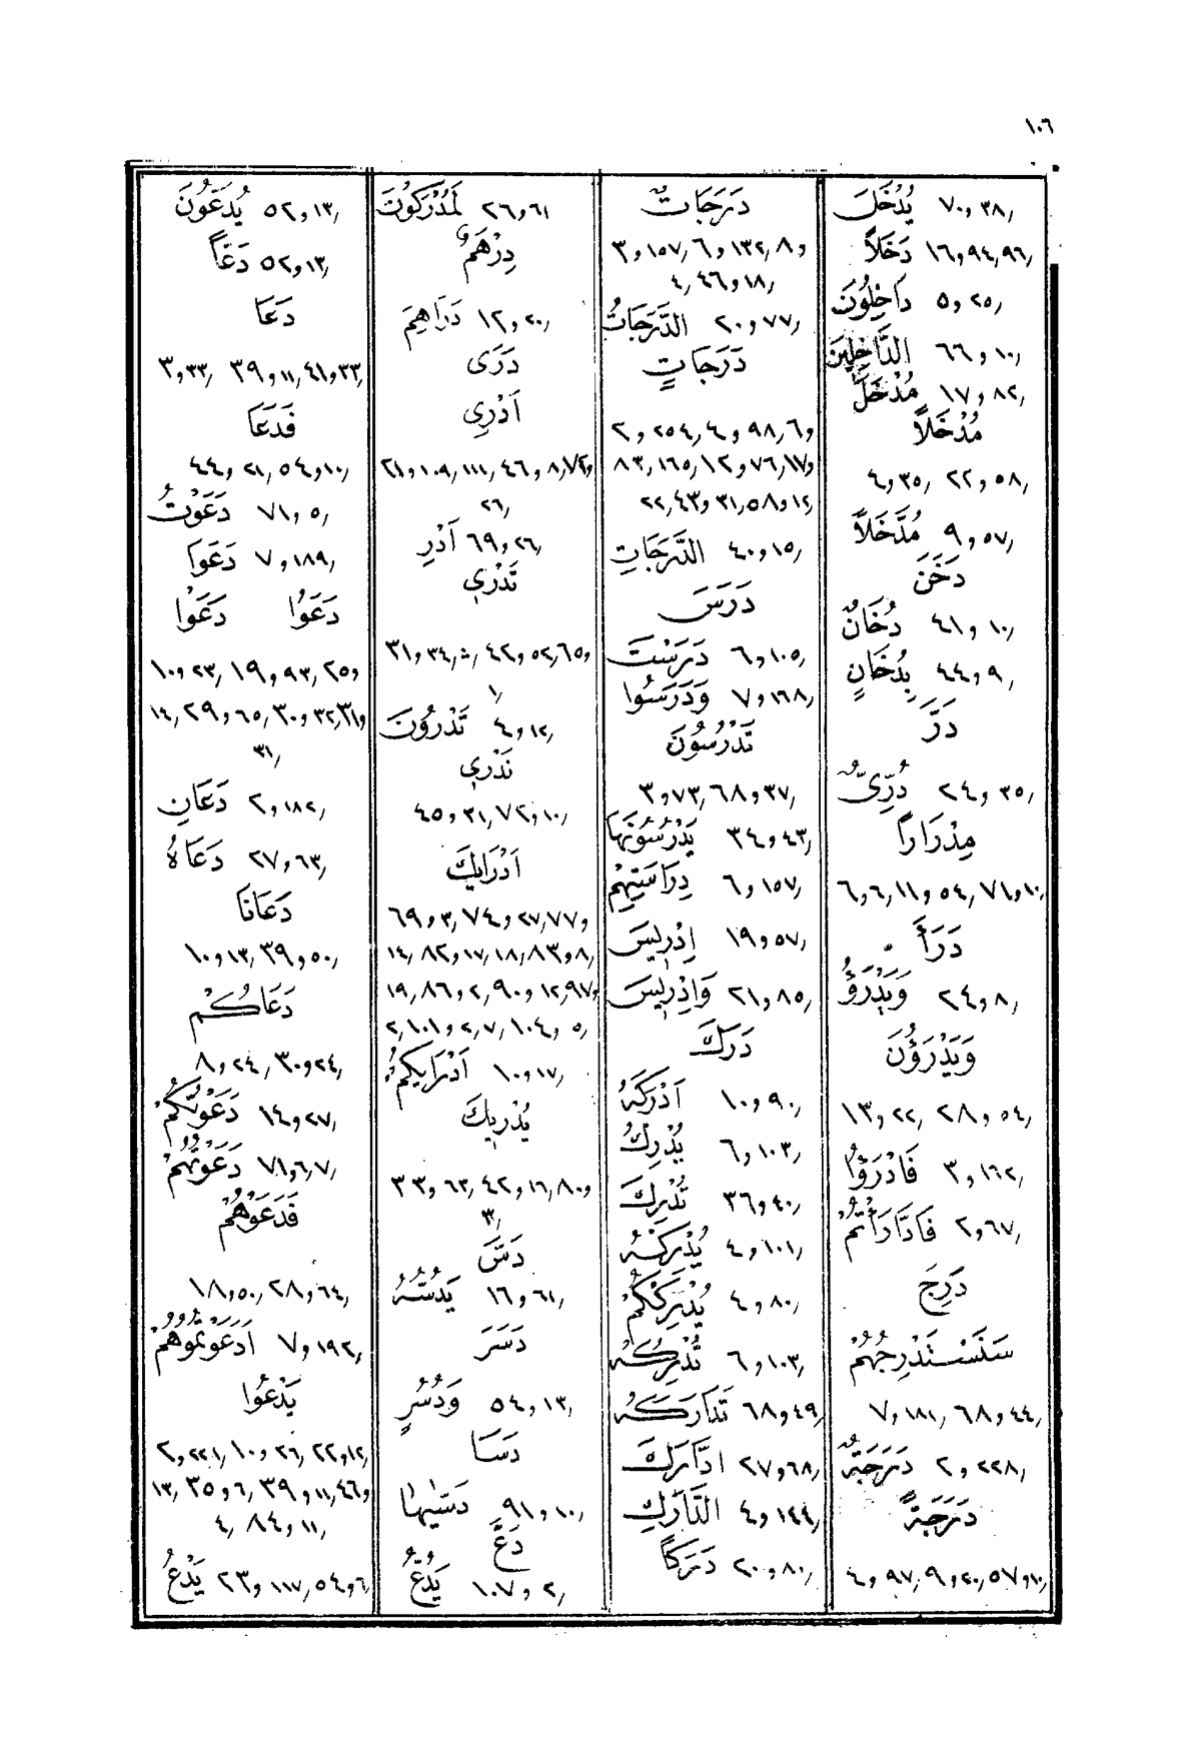 ١٠٦
يُدْخَلَ ٧٠,٣٨
دَخَلاً ١٦,٩٤,٩٦
دَاخِلُونَ ٥,٢٥
الدَّاخِلِينَ ٦٦,١٠
مُدْخَلَ ١٧,٨٢
مُدْخَلاً
٤,٣٥, ٢٢,٥٨
مُدَّخَلاً ٩,٥٧
دَخَنَ
دُخَانٌ ٤١,١٠
بِدُخَانٍ ٤٤,٩
دَرَّ
دُرِّىٌّ ٢٤,٣٥
مِدْرَاراً
٦,٦,١١,٥٤,٧١,١٠
دَرَأَ
وَيَدْرَؤُ ٢٤,٨
وَيَدْرَؤُنَ
١٣,٢٢, ٢٨,٥٤
فَادْرَؤُا ٣,١٦٢
فَادَّارَأْتُمْ ٢,٦٧
دَرِجَ
سَنَسْتَدْرِجُهُمْ
٧,١٨١, ٦٨,٤٤
دَرَجَةٌ ٢,٢٢٨
دَرَجَةً
٤,٩٧,٩,٢٠,٥٧,١٠
دَرَجَاتٌ
٣,١٥٧,٦,١٣٢,٨,
٤,٤٦,١٨
الدَّرَجَاتُ ٢٠,٧٧
دَرَجَاتٍ
٢,٢٥٤,٤,٩٨,٦,
٨٣,١٦٥,١٢,٧٦,١٧,
٢٢,٤٣,٣١,٥٨,١٢
الدَّرَجَاتِ ٤٠,١٥
دَرَسَ
دَرَسْتَ ٦,١٠٥
وَدَرَسُوا ٧,١٦٨
تَدْرُسُونَ
٣,٧٣,٦٨,٣٧
يَدْرُسُونَهَا ٣٤,٤٣
دِرَاسَتِهِمْ ٦,١٥٧
اِدْرِيسَ ١٩,٥٧
وَاِدْرِيسَ ٢١,٨٥
دَرَكَ
اَدْرَكَهُ ١٠,٩٠
يُدْرِكُ ٦,١٠٣
تُدْرِكَ ٣٦,٤٠
يُدْرِكْهُ ٤,١٠١
يُدْرِكْكُمْ ٤,٨٠
تُدْرِكُهُ ٦,١٠٣
تَدَارَكَهُ ٦٨,٤٩
ادَّارَكَ ٢٧,٦٨
الدَّرْكِ ٤,١٤٤
دَرَكاً ٢٠,٨٠
لَمُدْرَكُونَ ٢٦,٦١
دِرْهَمٌ
دَرَاهِمَ ١٢,٢٠
دَرَى
اَدْرِي
٢١,١٠٩,١١١,٤٦,٨,٧٢,
٢٦
اَدْرِ ٦٩,٢٦
تَدْرِي
٣١,٣٤, ٤٢,٥٢,٦٥,
١
تَدْرُونَ ٤,١٢
نَدْرِي
٤٥,٣١,٧٢,١٠
اَدْرَايكَ
٦٩,٣,٧٤,٢٧,٧٧,
١٤,٨٢,١٧,١٨,٨٣,٨
١٩,٨٦,٢,٩٠,١٢,٩٧,
٢,١٠١,٢,٧,١٠٤,٥
اَدْرَايكُمْ ١٠,١٧
يُدْرِيكَ
٣٣,٦٣,٤٢,١٦,٨٠,
٣
دَسَّ
يَدُسُّهُ ١٦,٦١
دَسَرَ
وَدُسُرٍ ٥٤,١٣
دَسَا
دَسّٰيهَا ٩١,١٠
دَعَّ
يَدُعُّ ١٠٧,٢
يُدَعُّونَ ٥٢,١٣
دَعّاً ٥٢,١٣
دَعَا
٣,٣٣, ٣٩,١١,٤١,٣٣
فَدَعَا
٤٤,٢١,٥٤,١٠
دَعَوْتُ ٧١,٥
دَعَوَا ٧,١٨٩
دَعَوُا دَعَوْا
١٠,٢٣,١٩,٩٣,٢٥,
١٤,٢٩,٦٥,٣٠,٣٢,٣١,
٣١
دَعَانِ ٢,١٨٢
دَعَاهُ ٢٧,٦٣
دَعَانَا
١٠,١٣,٣٩,٥٠
دَعَاكُمْ
٨,٢٤,٣٠,٢٤
دَعَوْتُكُمْ ١٤,٢٧
دَعَوْتُهُمْ ٧١,٦,٧
فَدَعَوْهُمْ
١٨,٥٠,٢٨,٦٤
اَدَعَوْتُمُوهُمْ ٧,١٩٢
يَدْعُوا
٢,٢٢١,١٠,٢٦,٢٢,١٢
١٣,٣٥,٦,٣٩,١١,٤٦,
٤,٨٤,١١
يَدْعُ ٢٣,١١٧,٥٤,٦